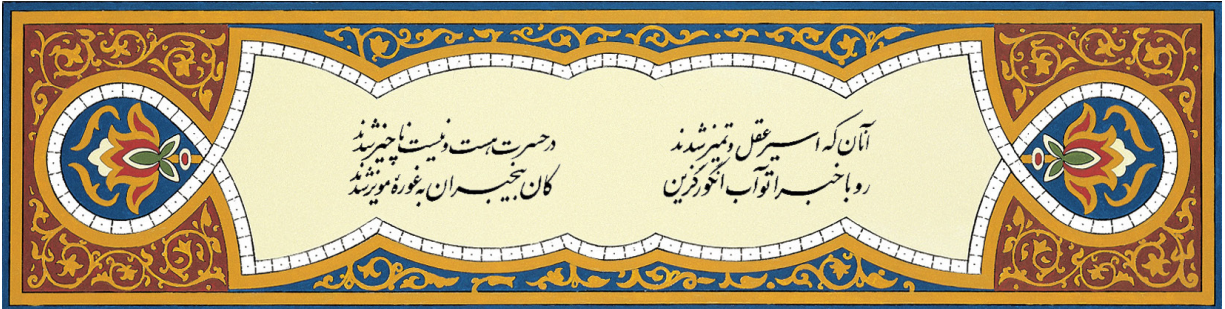 آنان که اسیر عقل و تمیز شدند در حسرت هست و نیست ناچیز شدند
رو با خبرا تو آب انگور گزین کان بیخبران به غورهٔ مویز شدند